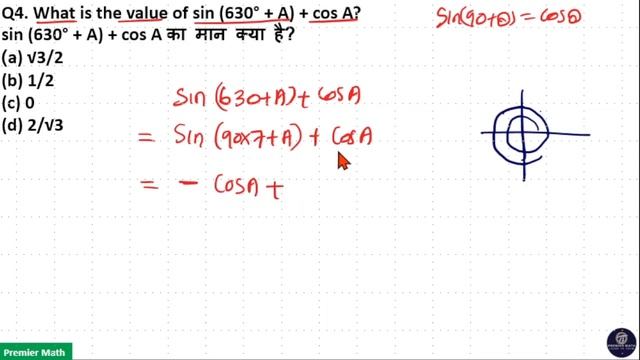 Q4. What is the value of sin (630° + A) + cos A?
sin (630° + A) + cos A का मान क्या है?
(a) √3/2
(b) 1/2
(c) 0
(d) 2/√3
Sin(90+θ) = cosθ
Sin (630+A) + cosA
= Sin (90x7+A) + cosA
= - cosA +
Premier Math
PREMIER MATH